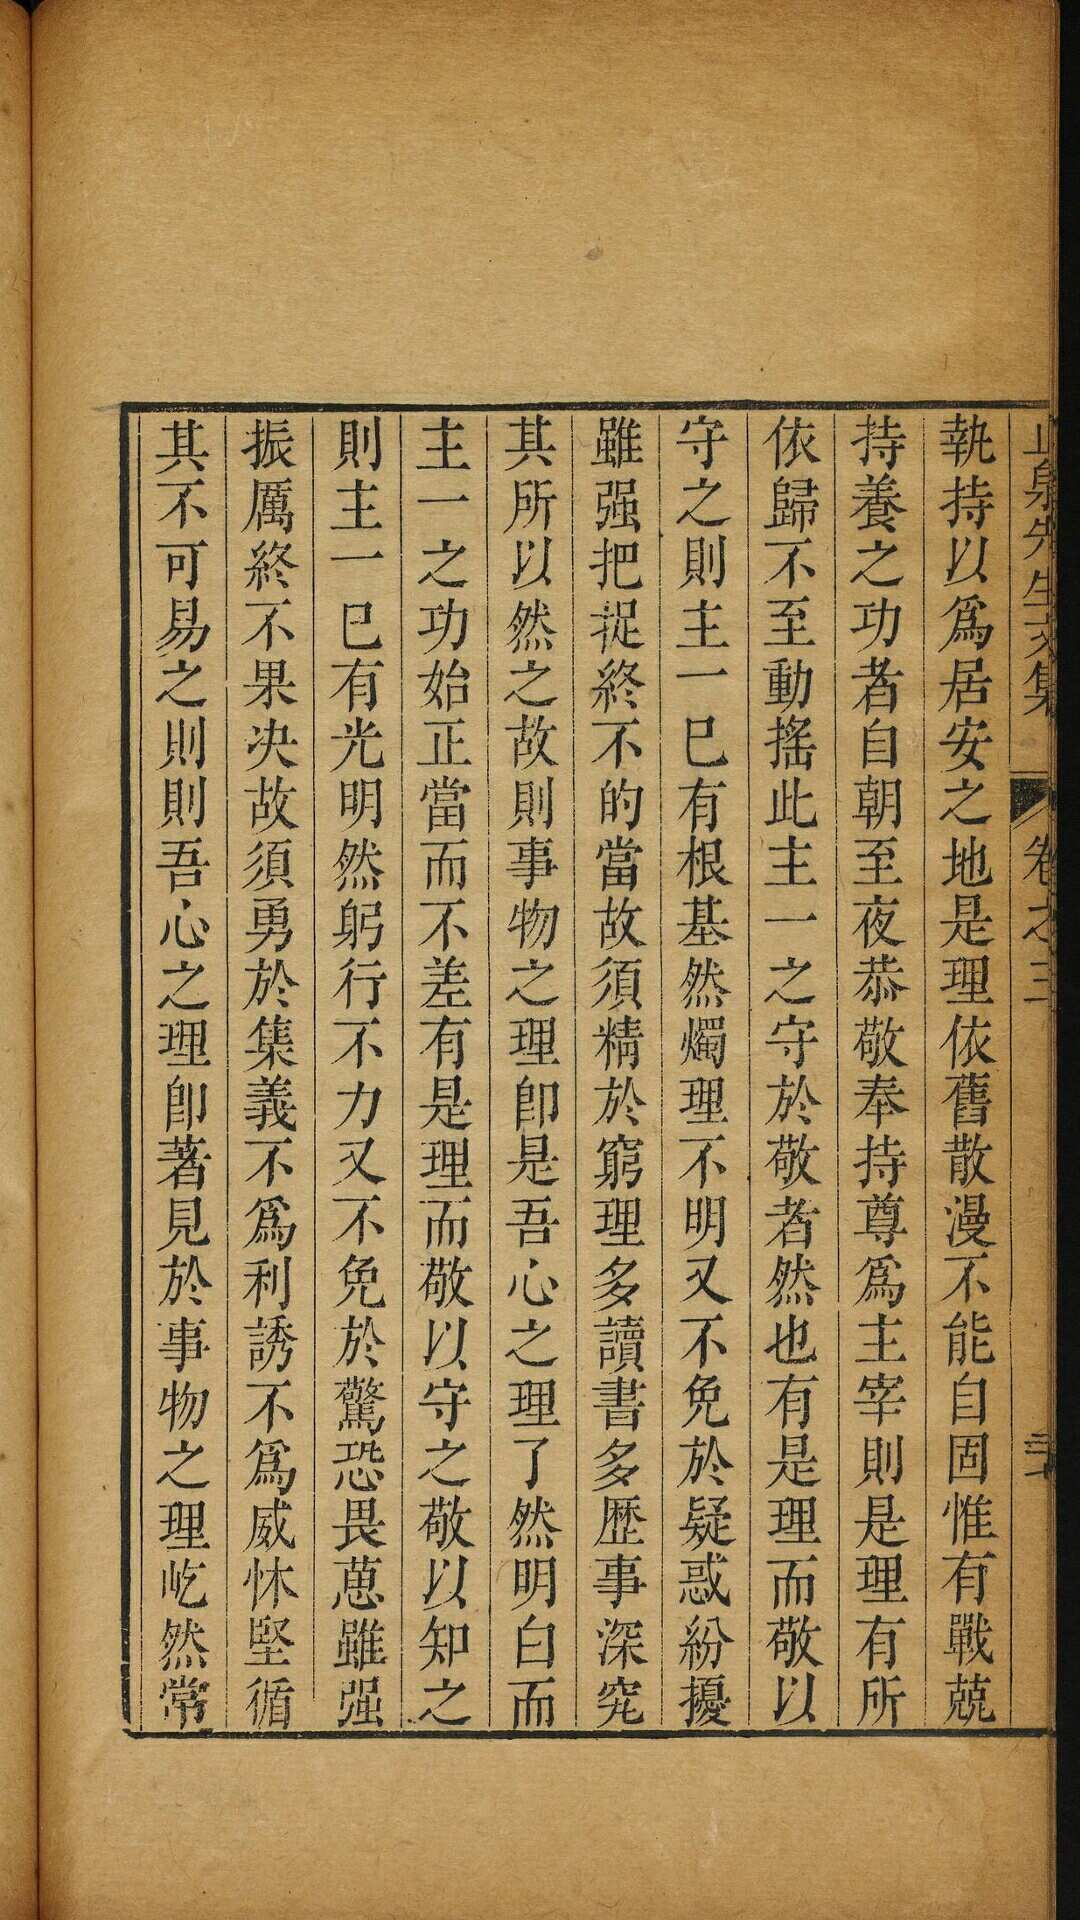 止泉先生文集 卷之三
執持以爲居安之地是理依舊散漫不能自固惟有戰兢
持養之功者自朝至夜恭敬奉持尊爲主宰則是理有所
依歸不至動搖此主一之守於敬者然也有是理而敬以
守之則主一巳有根基然燭理不明又不免於疑惑紛擾
雖强把捉終不的當故須精於窮理多讀書多歷事深究
其所以然之故則事物之理卽是吾心之理了然明白而
主一之功始正當而不差有是理而敬以守之敬以知之
則主一巳有光明然躬行不力又不免於驚恐畏葸雖强
振厲終不果决故須勇於集義不爲利誘不爲威怵堅循
其不可易之則則吾心之理卽著見於事物之理屹然常